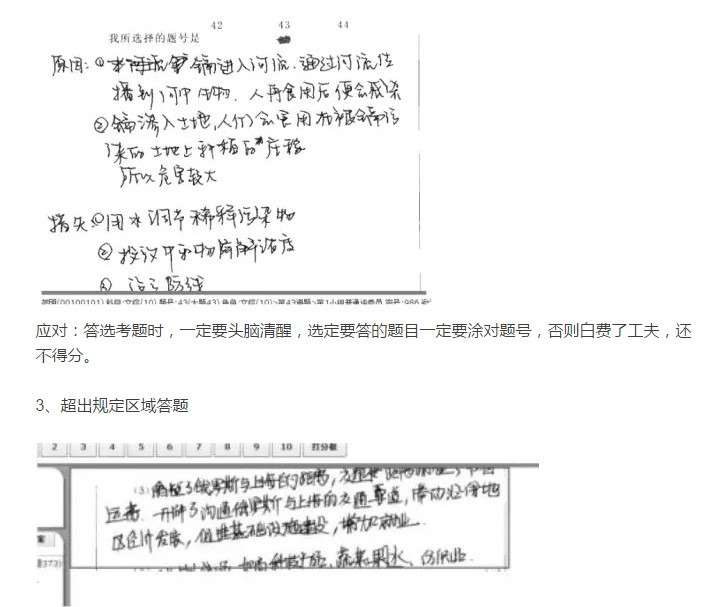 42 43 44
我所选择的题号是
原因:① 镉进入河流.通过河流传
播到河中生物.人再食用后便会感染
②镉渗入土地,人们会食用在被镉污
染的土地上种植的庄稼
所以危害较大
措失①用水调节稀释污染物
②投议中和物质降解浓度
③ 设立防线
应对：答选考题时，一定要头脑清醒，选定要答的题目一定要涂对题号，否则白费了工夫，还
不得分。
3、超出规定区域答题
2 3 4 5 6 7 8 9 10 打分板
(3)缩短了俄罗斯与上海的距离,
运费.开辟了沟通俄罗斯与上海的交通要道,带动沿途地
区经济发展,促进基础设施建设,增加就业.
蔬菜水果、
373)